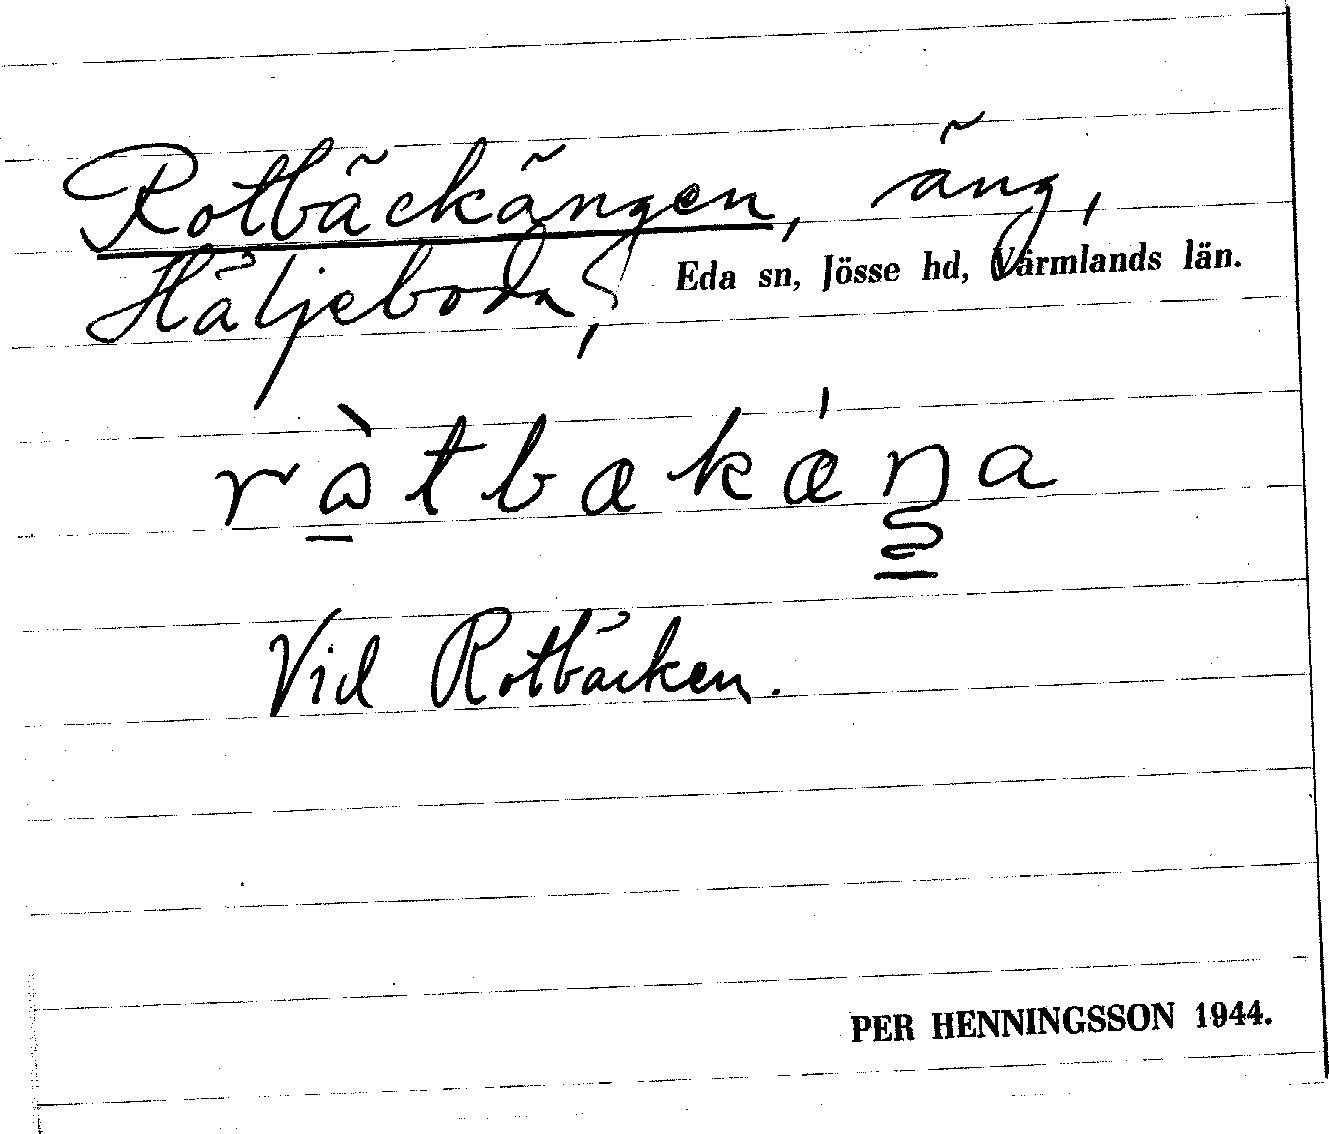 Rotbäckängen, äng,
Häljeboda, Eda sn, Jösse hd, Värmlands län.
Vid Rotbäcken.
PER HENNINGSSON 1944.